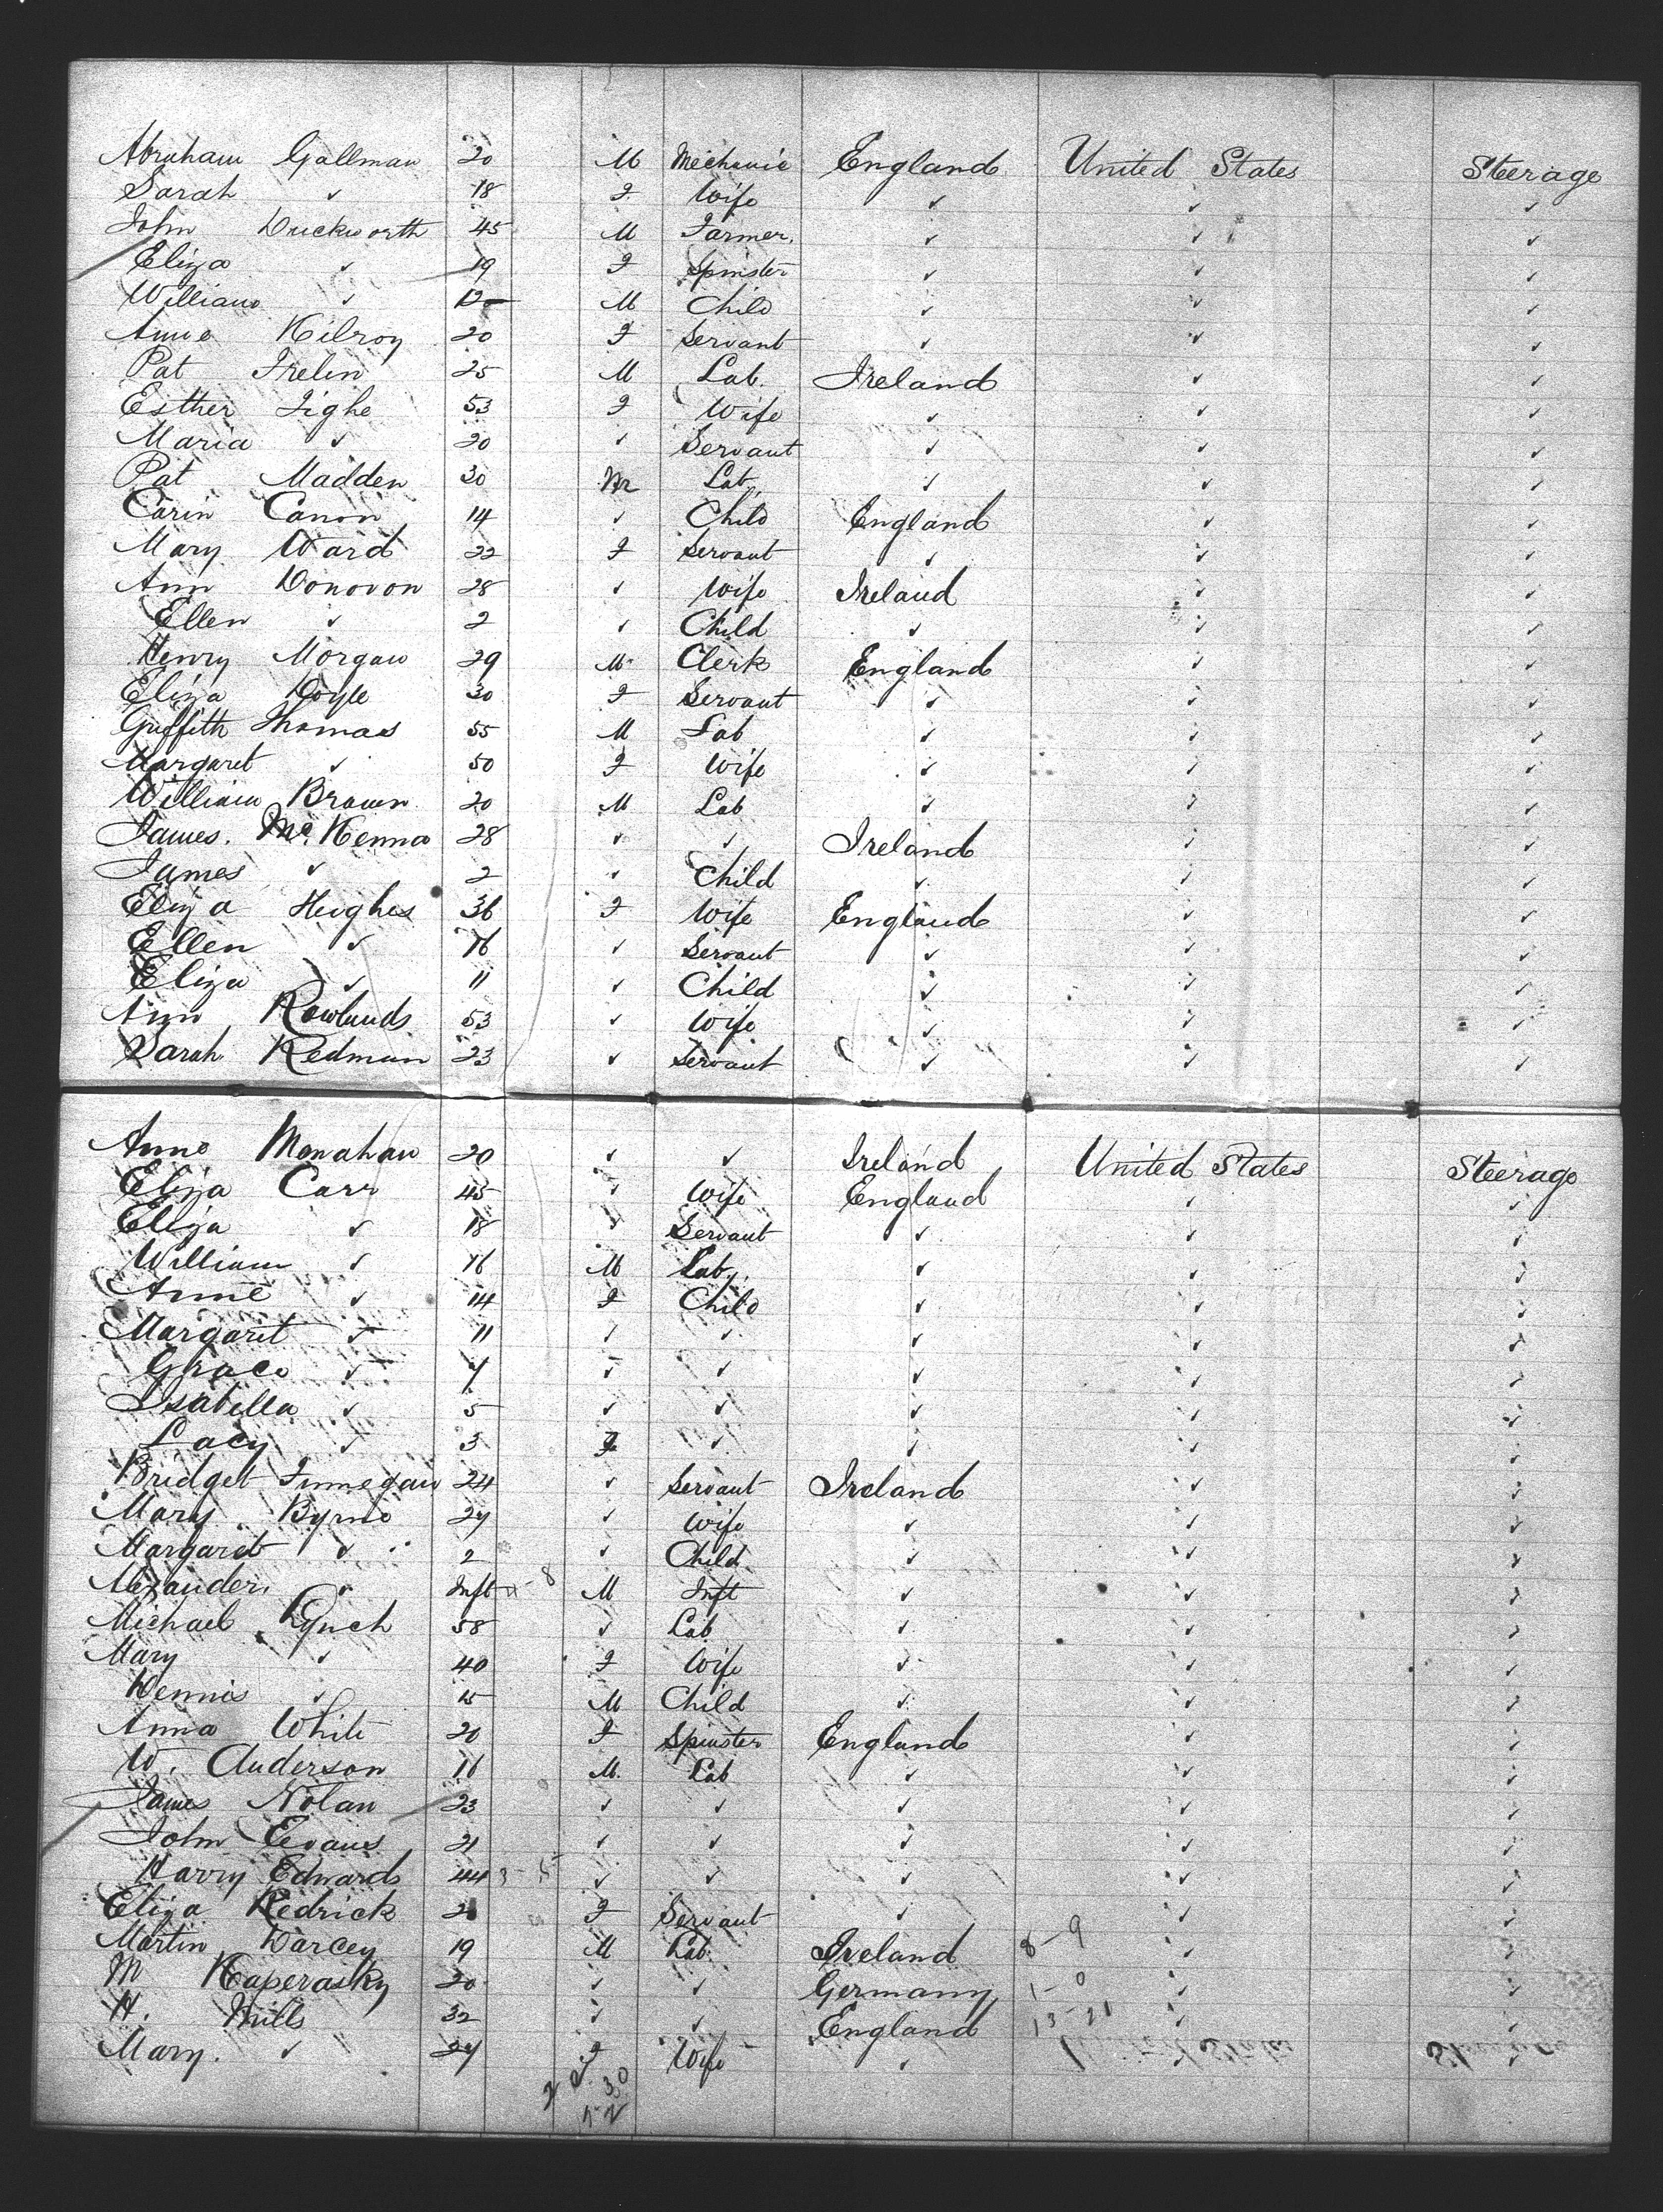 Abraham Gallman 20 M Mechanic England United States Steerage
Sarah ✓ 18 F Wife ✓ ✓ ✓
John Duckworth 45 M Farmer. ✓ ✓ ✓
Eliza ✓ 19 F Spinster ✓ ✓ ✓
William ✓ 12 M Child ✓ ✓ ✓
Anne Kilroy 20 F Servant ✓ ✓ ✓
Pat 25 M Lab. Ireland ✓ ✓
Esther Tighe 53 F Wife ✓ ✓ ✓
Maria ✓ 20 ✓ Servant ✓ ✓ ✓
Pat Madden 30 M Lab ✓ ✓ ✓
Canon 14 ✓ Child England ✓ ✓
Mary Ward 22 F Servant ✓ ✓ ✓
Ann Donovon 28 ✓ Wife Ireland ✓ ✓
Ellen ✓ 2 ✓ Child ✓ ✓ ✓
Henry Morgan 29 M Clerk England ✓ ✓
Eliza Doyle 30 F Servant ✓ ✓ ✓
Griffith Thomas 55 M Lab ✓ ✓ ✓
Margaret ✓ 50 F Wife ✓ ✓ ✓
William Brown 20 M Lab ✓ ✓ ✓
James. McKenna 28 ✓ ✓ Ireland ✓ ✓
James ✓ 2 ✓ Child ✓ ✓ ✓
Eliza Hughes 36 F Wife England ✓ ✓
Ellen ✓ 16 ✓ Servant ✓ ✓ ✓
Eliza ✓ 11 ✓ Child ✓ ✓ ✓
Ann Rowlands 53 ✓ Wife ✓ ✓ ✓
Sarah Redman 23 ✓ Servant ✓ ✓ ✓
Anne Monahan 20 ✓ ✓ Ireland United States Steerage
Eliza Carr 45 ✓ Wife England ✓ ✓
Eliza ✓ 18 ✓ Servant ✓ ✓ ✓
William ✓ 16 M Lab. ✓ ✓ ✓
Anne ✓ 14 F Child ✓ ✓ ✓
Margaret ✓ 11 ✓ ✓ ✓ ✓ ✓
Grace ✓ 7 ✓ ✓ ✓ ✓ ✓
Isabella ✓ 5 ✓ ✓ ✓ ✓ ✓
Lacy ✓ 3 F ✓ ✓ ✓ ✓
Bridget Finnegan 24 ✓ Servant Ireland ✓ ✓
Mary Byrne 27 ✓ Wife ✓ ✓ ✓
Margaret ✓ 2 ✓ Child ✓ ✓ ✓
Alexander. ✓ Inft 8 M Inft ✓ ✓ ✓
Michael Lynch 58 ✓ Lab ✓ ✓ ✓
Mary ✓ 40 F Wife ✓ ✓ ✓
Dennis ✓ 15 M Child ✓ ✓ ✓
Anna White 20 F Spinster England ✓ ✓
W. Anderson 16 M. Lab ✓ ✓ ✓
James Nolan 23 ✓ ✓ ✓ ✓ ✓
John Evans 21 ✓ ✓ ✓ ✓ ✓
Harry Edwards 44 ✓ ✓ ✓ ✓ ✓
Eliza Kedrick F Servant ✓ ✓ ✓
Martin Darcey 19 M Lab. Ireland 8-9 ✓ ✓
M Kaperasky 20 ✓ ✓ Germany 1-0 ✓ ✓
H. Mills 32 ✓ ✓ England 13-21 ✓ ✓
Mary. ✓ 27 F Wife ✓ ✓ ✓
30